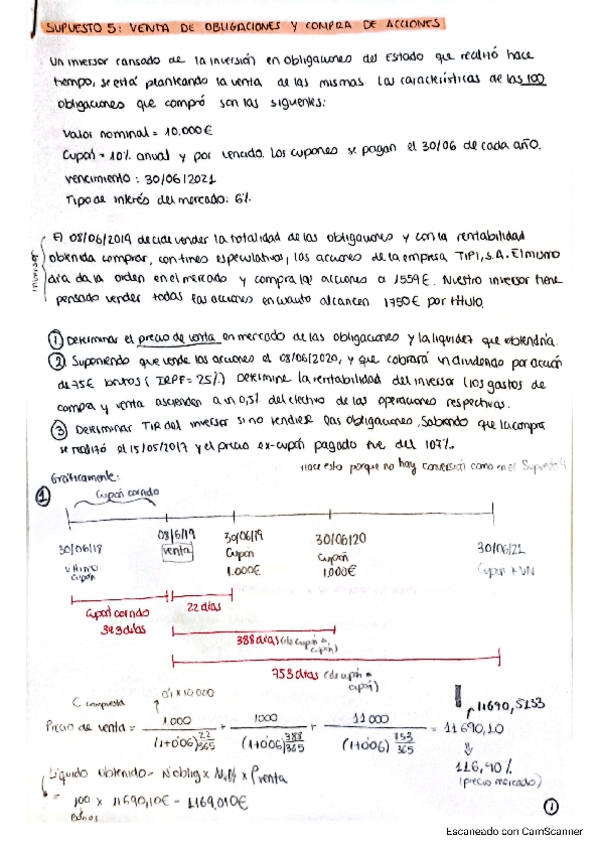 SUPUESTO 5: VENTA DE OBLIGACIONES Y COMPRA DE ACCIONES
Un inversor cansado de la inversión en obligaciones del Estado que realizó hace
tiempo, se está planteando la venta de las mismas. Las características de las 100
obligaciones que compró son las siguientes:
Valor nominal = 10.000€
Cupón = 10% anual y por vencido. Los cupones se pagan el 30/06 de cada año.
Vencimiento: 30/06/2021
Tipo de interés del mercado: 6%
inversor
El 08/06/2019 decide vender la totalidad de las obligaciones y con la rentabilidad
obtenida comprar, con fines especulativos, las acciones de la empresa TIPI, S.A. El mismo
día da la orden en el mercado y compra las acciones a 1559€. Nuestro inversor tiene
pensado vender todas las acciones en cuanto alcancen 1750€ por título.
① Determinar el precio de venta en mercado de las obligaciones y la liquidez que obtendría.
② Suponiendo que vende las acciones el 08/06/2020, y que cobrará un dividendo por acción
de 75€ brutos (IRPF = 25%) Determine la rentabilidad del inversor (los gastos de
compra y venta ascienden a un 0,5% del efectivo de las operaciones respectivas.
③ Determinar TIR del inversor si no vendiese las obligaciones, sabiendo que la compra
se realizó el 15/05/2017 y el precio ex-cupón pagado fue del 107%.
Hace esto porque no hay conversión como en el Supuesto 4
Gráficamente:
①
Cupón corrido
30/06/18
último
cupón
08/6/19
venta
30/06/19
Cupon
1.000€
30/06/20
Cupón
1.000€
30/06/21
Cupon + VN
Cupón corrido
343 días
22 días
388 días (de cupón a
cupón)
753 días (de cupón a
cupón)
C compuesta
0'1 x 10000
11690,5133
Precio de venta = 1.000/(1+0'06)^22/365 + 1000/(1+0'06)^388/365 + 11000/(1+0'06)^753/365 = 11690,10
116,90%
(precio mercado)
Líquido obtenido = Nºoblig x x Pventa
= 100 x 11690,10€ = 1169,010€
①
Escaneado con CamScanner